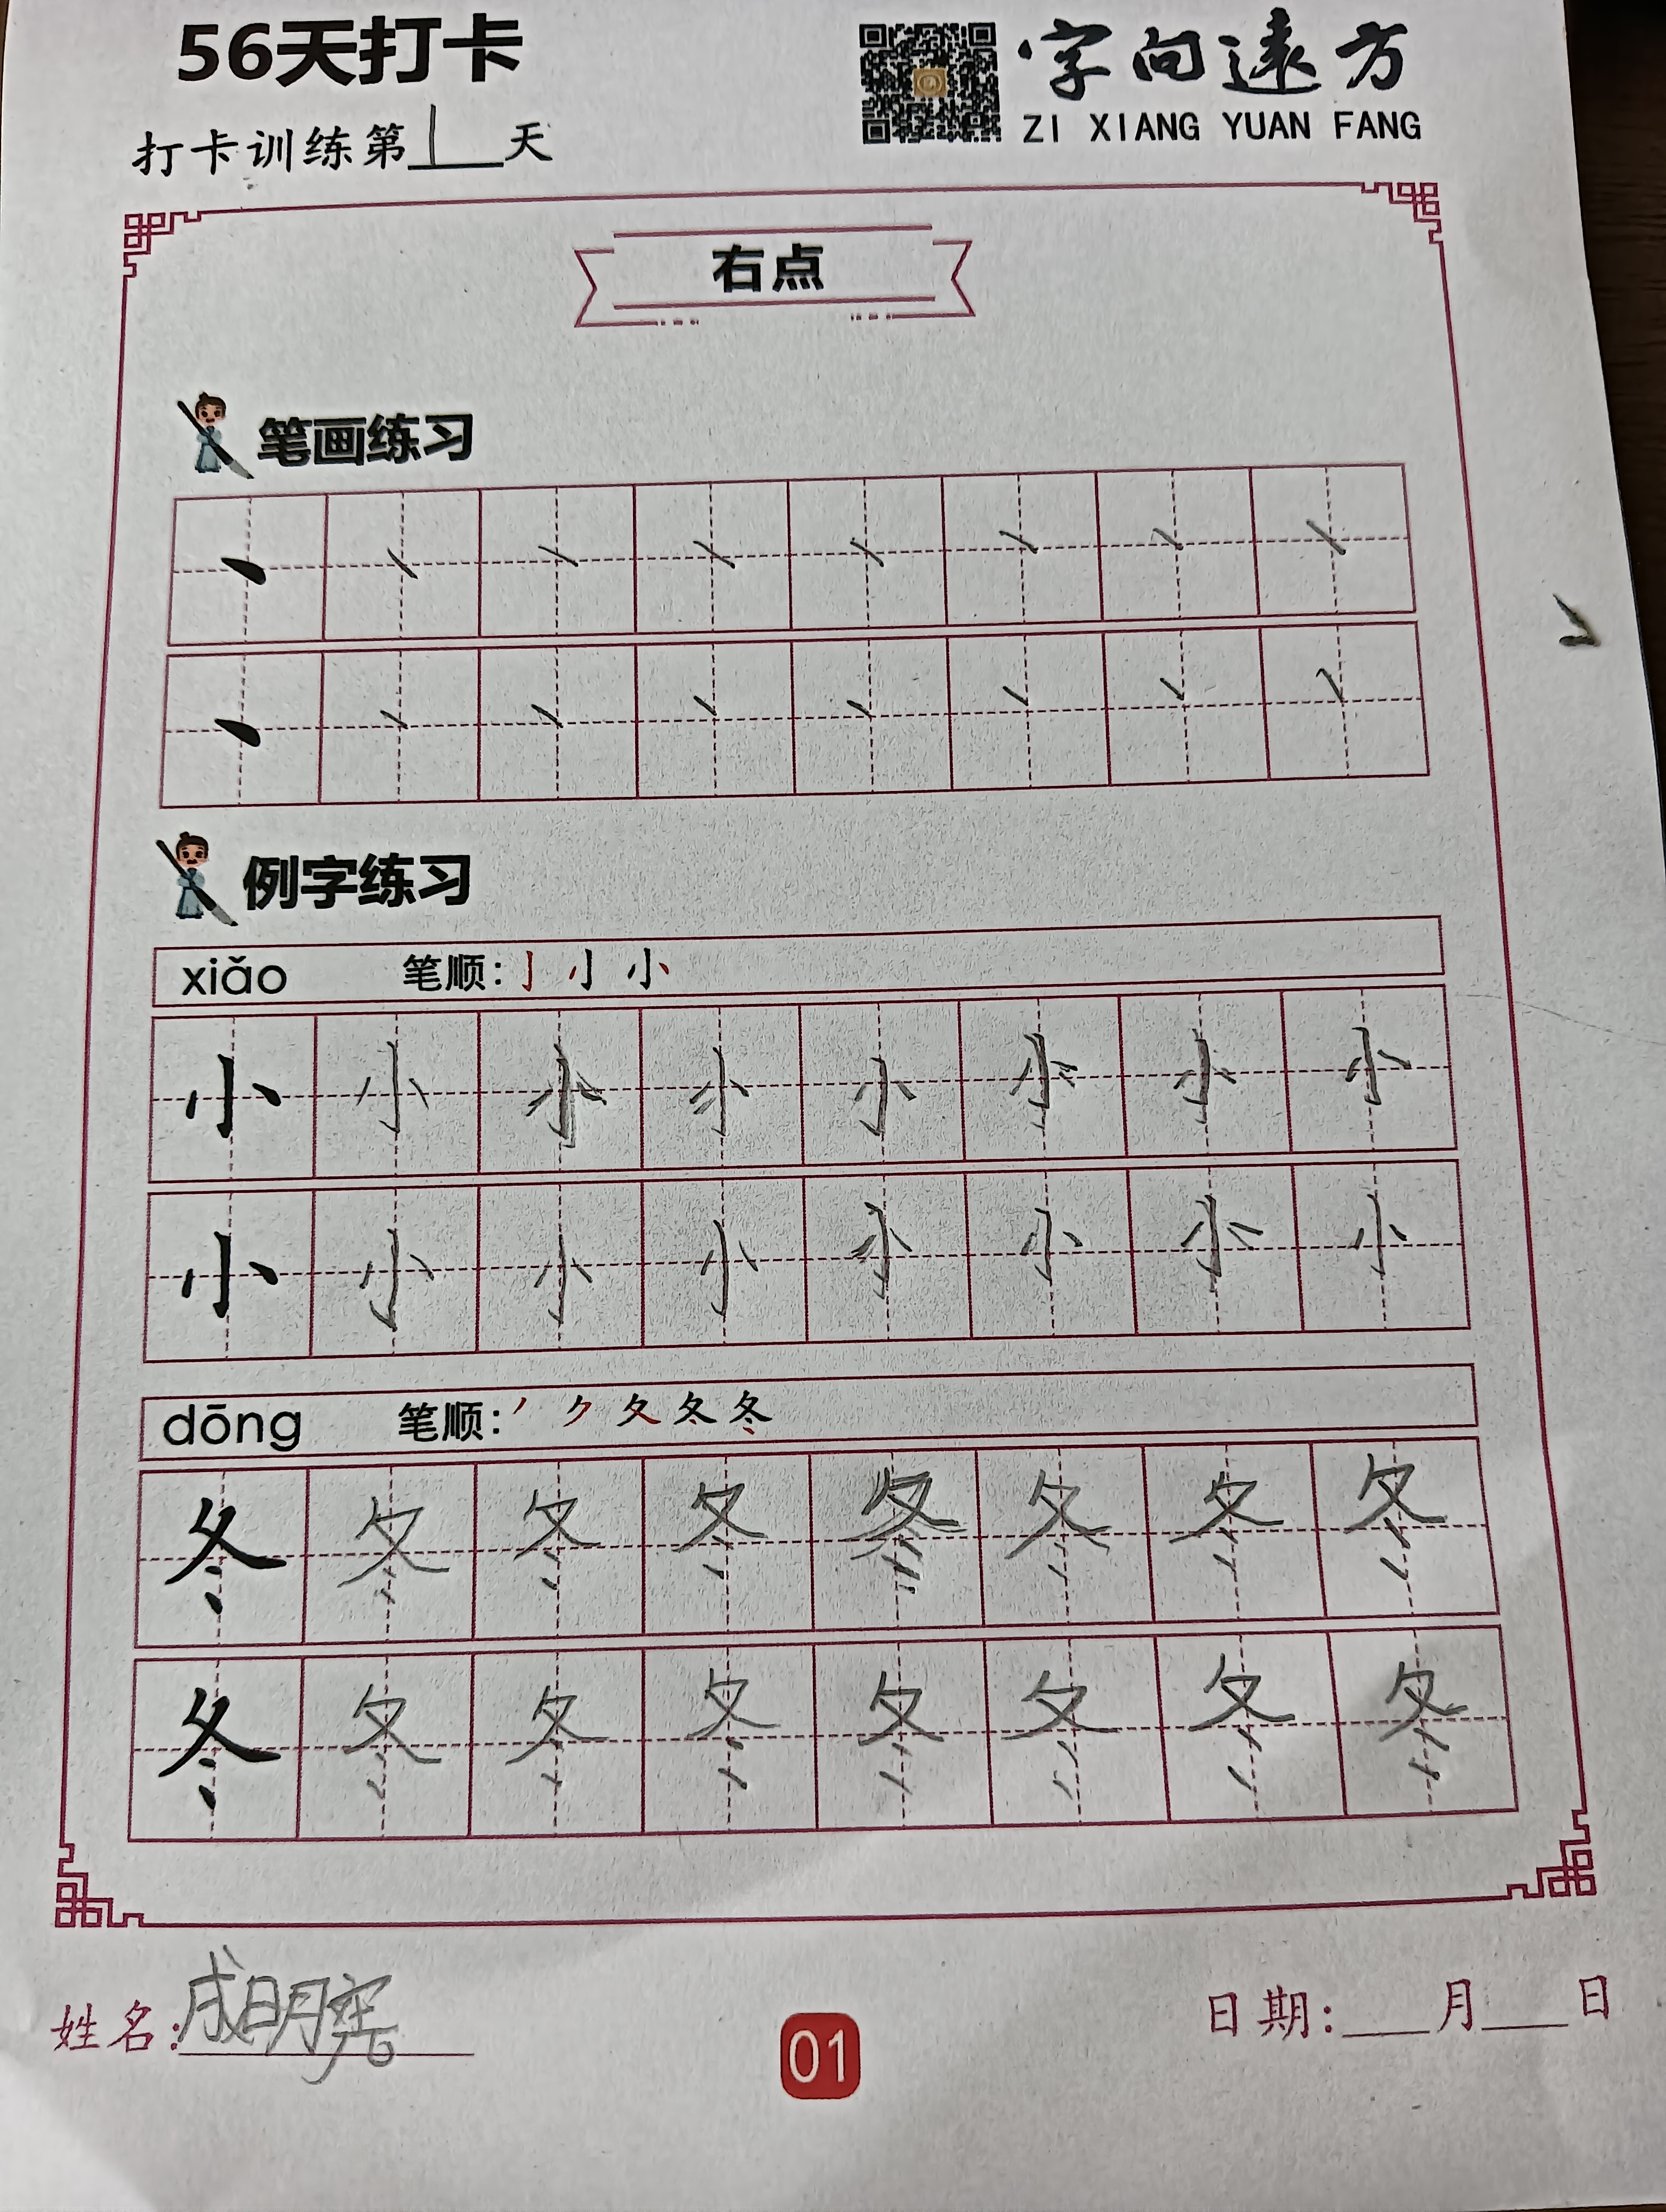 56天打卡
字向遠方
ZI XIANG YUAN FANG
打卡训练第1天
右点
笔画练习
例字练习
xiǎo 笔顺: 亅 小
小 小 小 小 小 小 小 小
小 小 小 小 小 小 小 小
dōng 笔顺: 丿 ク 夂 冬
冬 冬 冬 冬 冬 冬 冬 冬
冬 冬 冬 冬 冬 冬 冬 冬
姓名: 成明
01
日期:___月___日